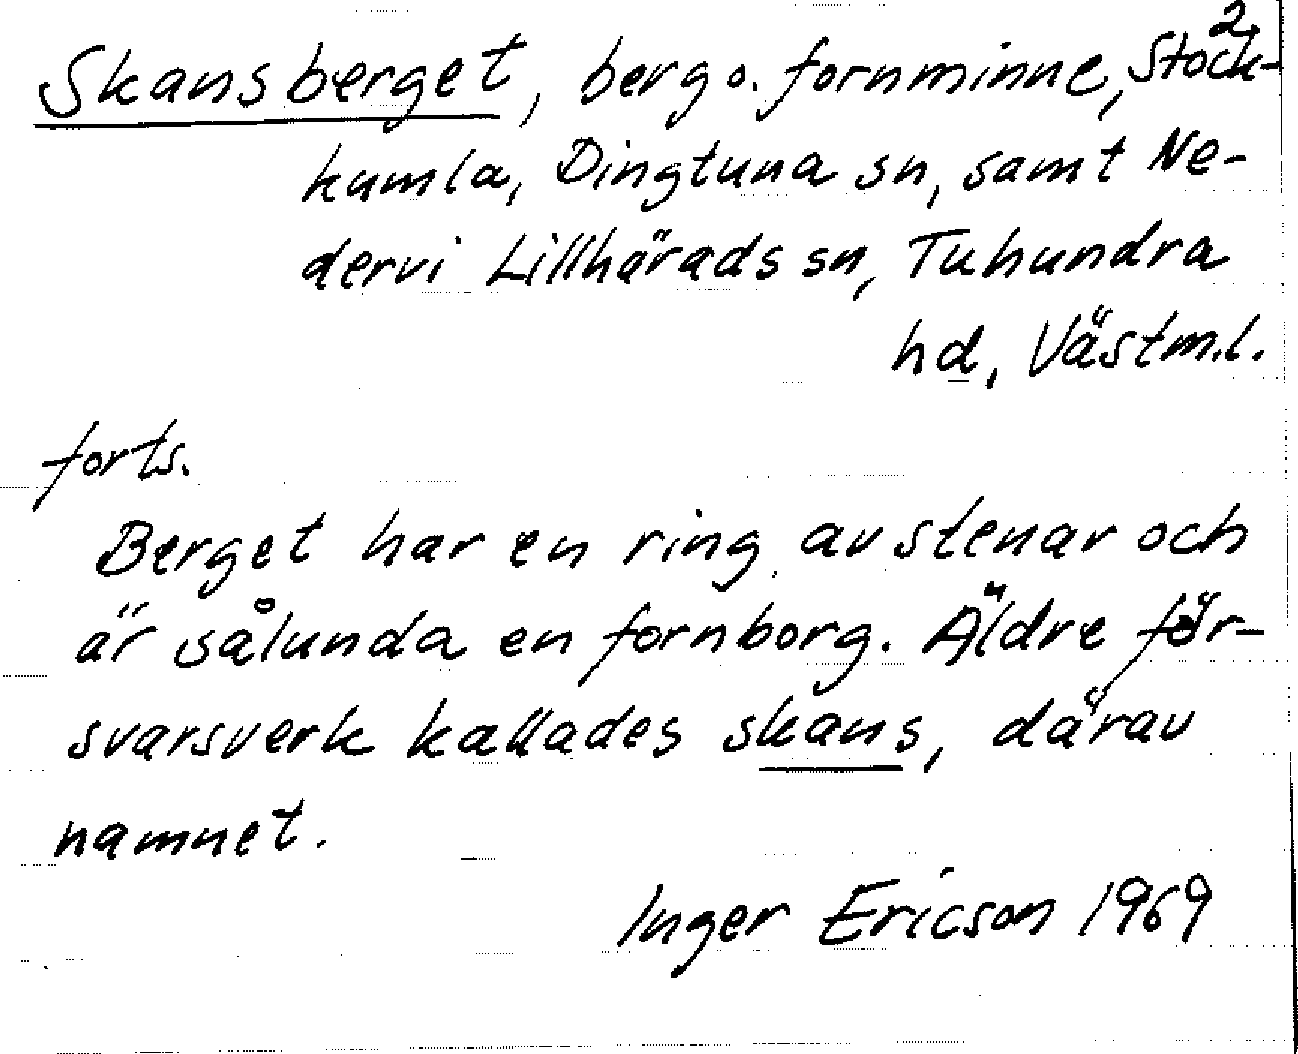 2.
Skansberget, berg o. fornminne, Stock-
kumla, Dingtuna sn, samt Ne-
dervi Lillhärads sn, Tuhundra
hd, Västm.l.
forts.
Berget har en ring av stenar och
är sålunda en fornborg. Äldre för-
svarsverk kallades skans, därav
namnet.
Inger Ericson 1969